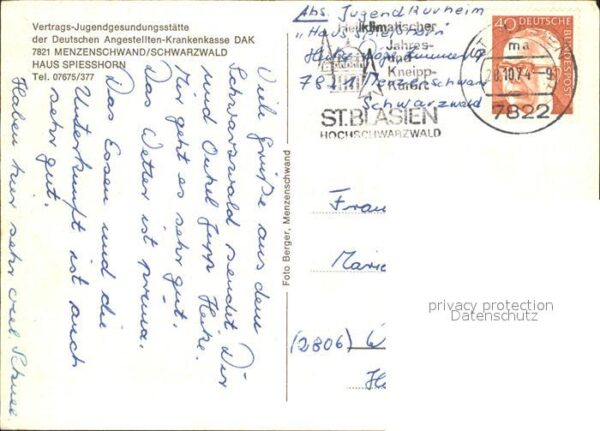 Vertrags-Jugendgesundungsstätte
der Deutschen Angestellten-Krankenkasse DAK
7821 MENZENSCHWAND/SCHWARZWALD
HAUS SPIESSHORN
Tel. 07675/377
Viele Grüße aus dem
Schwarzwald sendet Dir
und Onkel Jupp Heike.
Mir geht es sehr gut.
Das Wetter ist prima.
Das Essen und die
Unterkunft ist auch
sehr gut.
Haben hier sehr viel Schnee.
Foto Berger, Menzenschwand
Abs. Jugendkurheim
"Haus Spießhorn"
7821 Menzenschwand
Schwarzwald
Heilklimatischer
Jahres-
und
Kneipp-
Kurort
ST. BLASIEN
HOCHSCHWARZWALD
40 DEUTSCHE
BUNDESPOST
ma
28.10.74-9
7822
Frau
Marie
(2806)
privacy protection
Datenschutz